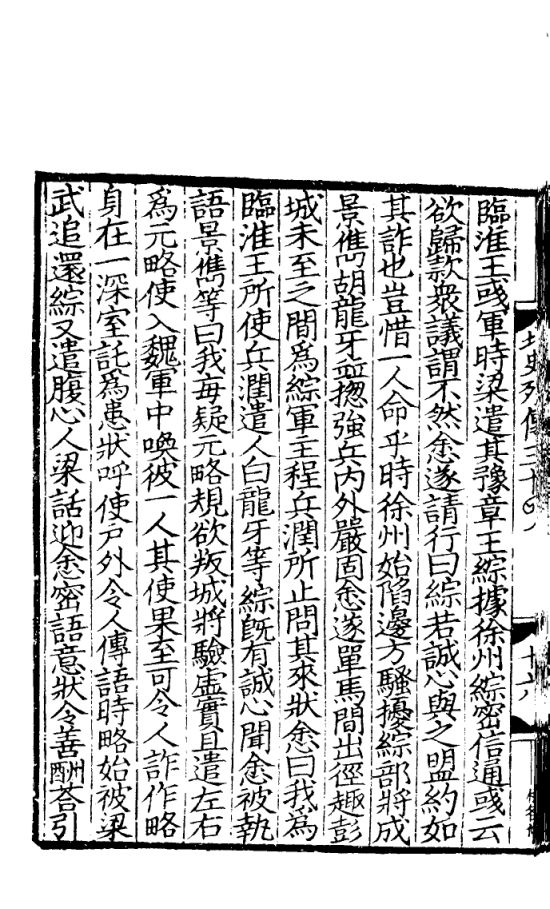 北史列傳三十八
十六
臨淮王彧軍時梁遣其豫章王綜據徐州綜密信通彧云
欲歸款衆議謂不然悆遂請行曰綜若誠心與之盟約如
其詐也豈惜一人命乎時徐州始陷邊方騷擾綜部將成
景儁胡龍牙並揔強兵內外嚴固悆遂單馬間出徑趣彭
城未至之間爲綜軍主程兵潤所止問其來狀悆曰我爲
臨淮王所使兵潤遣人白龍牙等綜旣有誠心聞悆被執
語景儁等曰我每疑元略規欲叛城將驗虛實且遣左右
爲元略使入魏軍中喚彼一人其使果至可令人詐作略
身在一深室託爲患狀呼使戶外令人傳語時略始被梁
武追還綜又遣腹心人梁話迎悆密語意狀令善酬荅引